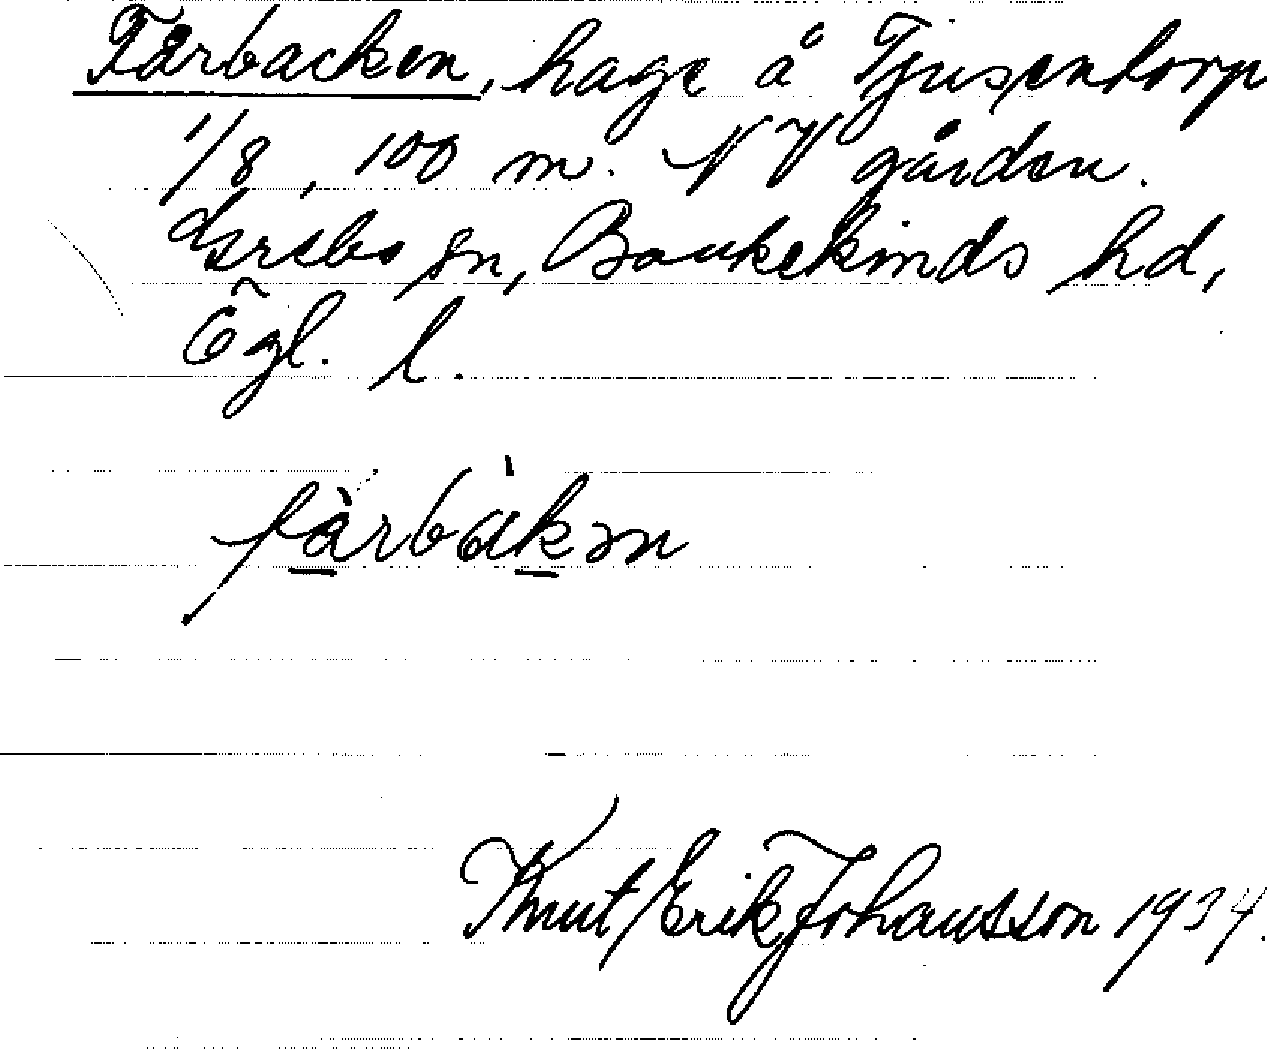 Fårbacken, hage å Tjusentorp
1/8, 100 m. NV gården.
Gärsebo sn, Bankekinds hd,
Ögl. l.
fàrbàkən
Knut Erik Johansson 1934.